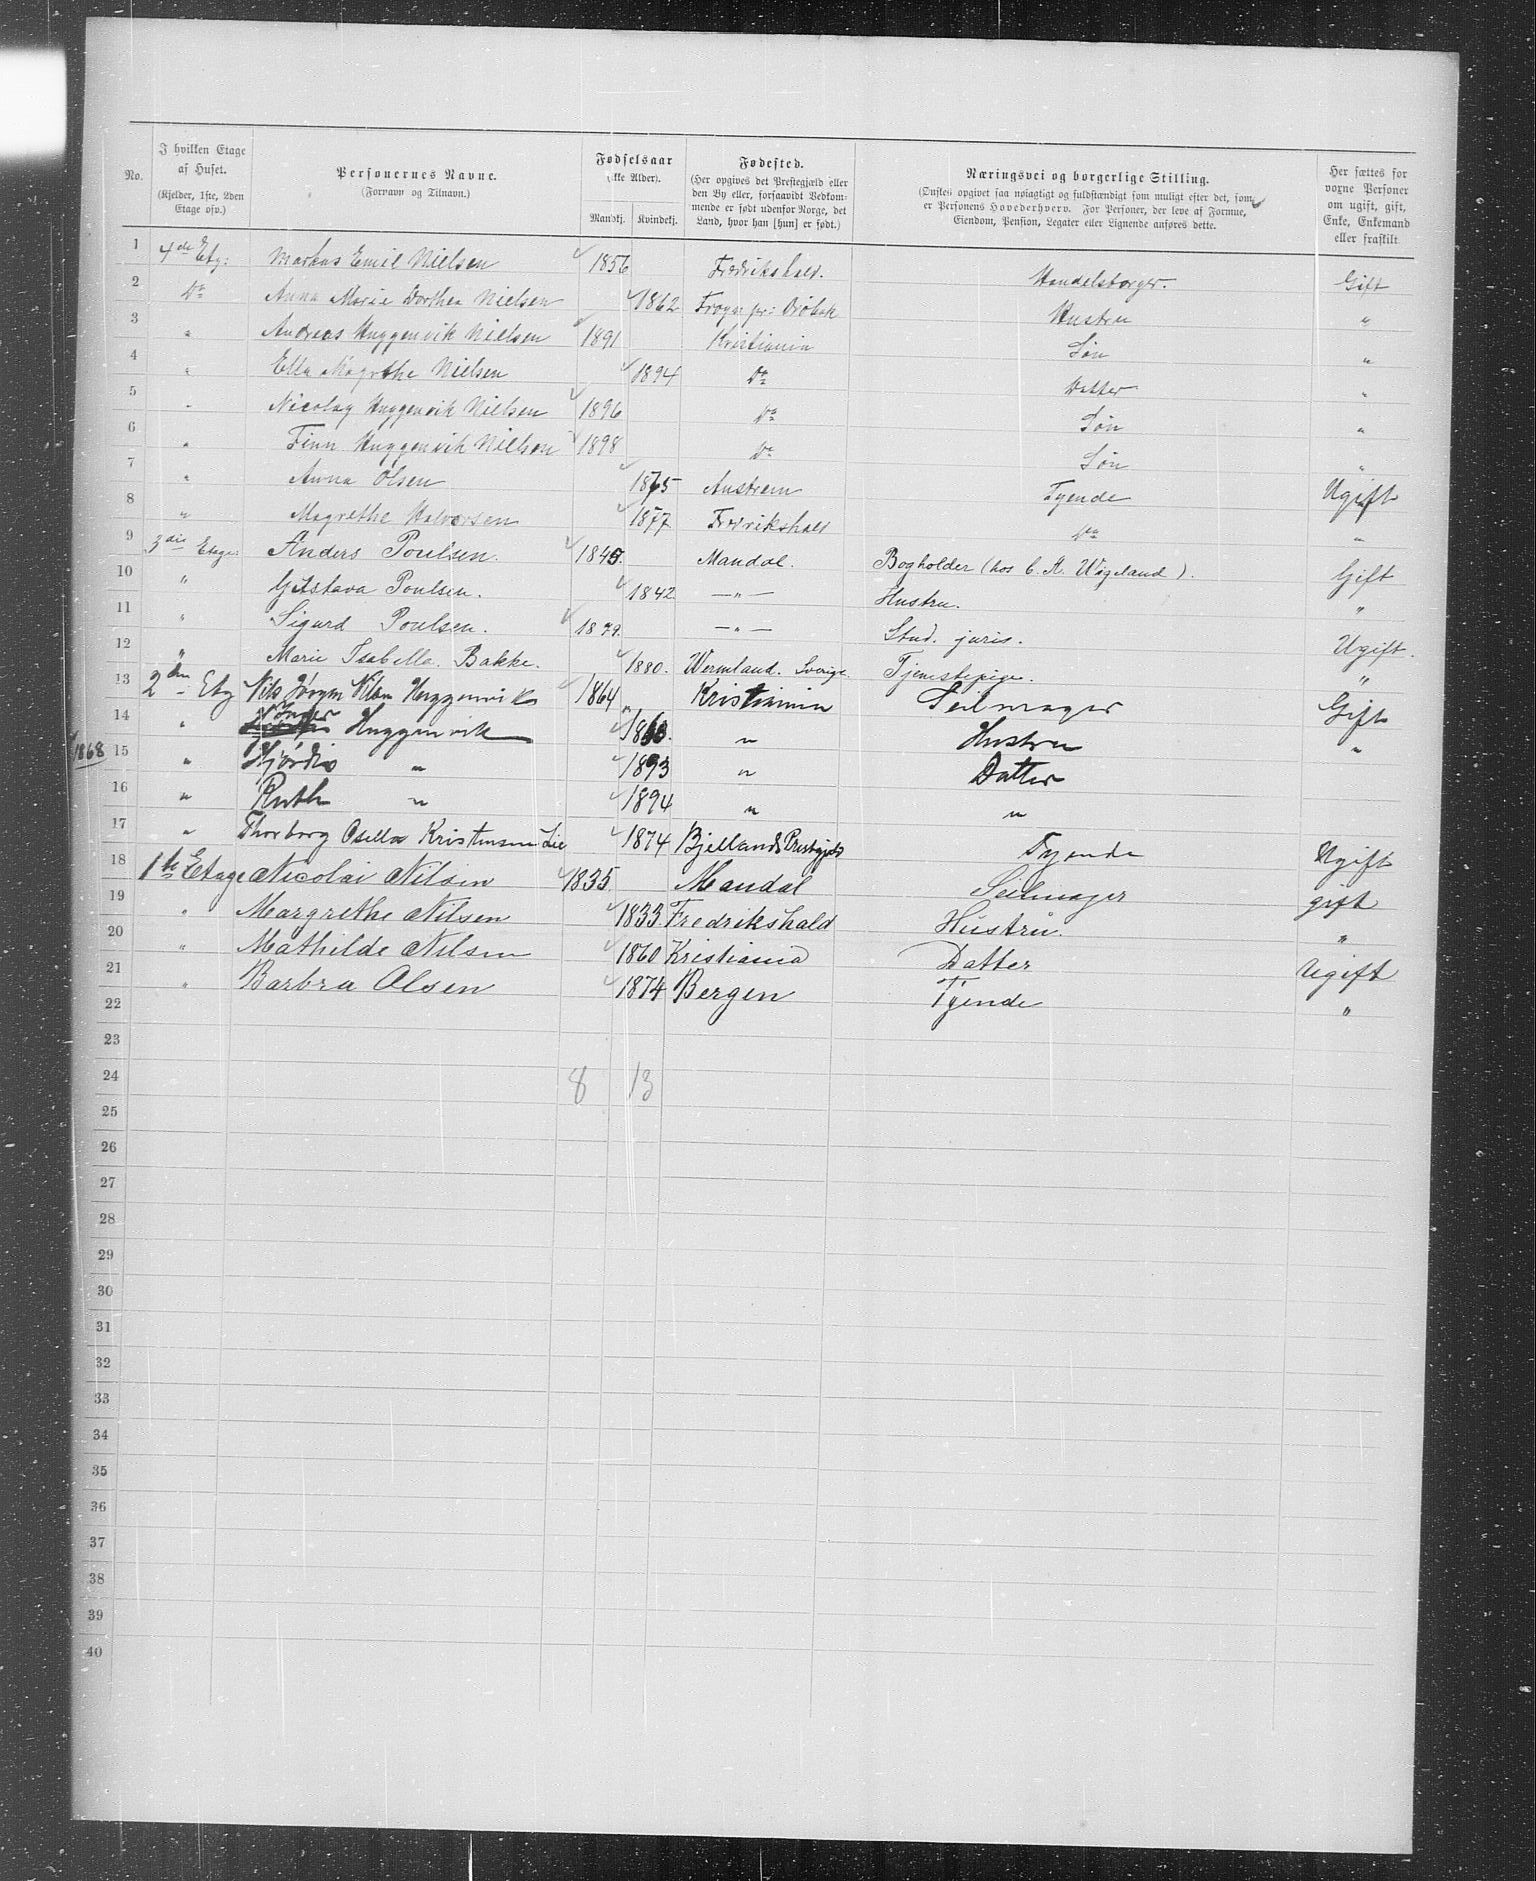 No. | I hvilken Etage af Huset. (Kjelder, 1ste, 2den Etage osv.) | Personernes Navne. (Fornavn og Tilnavn.) | Fødselsaar (ikke Alder). Mandkj. | Kvindekj. | Fødested. (Her opgives det Prestegjæld eller den By eller, forsaavidt Vedkommende er født udenfor Norge, det Land, hvor han [hun] er født.) | Næringsvei og borgerlige Stilling. (Ønskes opgivet saa nøiagtigt og fuldstændigt som muligt efter det, som er Personens Hovederhverv. For Personer, der leve af Formue, Eiendom, Pension, Legater eller Lignende anføres dette. | Her sættes for voxne Personer om ugift, gift, Enke, Enkemand eller fraskilt
1 4de Etg: Markus Emil Nielsen 1856 Fredrikshald. Handelsborger. Gift
2 Do Anna Marie Dorthea Nielsen 1862 Frogn pr: Drøbak Hustru "
3 " Andreas Huggenvik Nielsen 1891 Kristiania Søn "
4 " Ella Magrethe Nielsen 1894 Do Datter "
5 " Nicolay Huggenvik Nielsen 1896 Do Søn "
6 " Finn Huggenvik Nielsen 1898 Do Søn "
7 " Anna Olsen 1875 Austrem Tyende Ugift
8 " Magrethe Halvorsen 1877 Fredrikshald Do "
9 3die Etage: Anders Poulsen. 1845. Mandal. Bogholder (hos C. A. Wigeland). Gift
10 " Gustava Poulsen. 1842. —"— Hustru. "
11 " Sigurd Poulsen. 1879. —"— Stud. juris. Ugift.
12 " Marie Isabella. Bakke. 1880. Wermland. Sverige. Tjenestepige. "
13 2den Etg Nils Jørgen Nilsen Huggenvik 1864 Kristiania Seilmager Gift
14 " Inger Huggenvik " Hustru "
1868
15 " Hjørdis " 1893 " Datter
16 " Ruth " 1894 " "
17 " Thorborg Osella Kristensen Lie 1874 Bjellands Prestgjeld Tyende Ugift
18 1te Etage Nicolai Nilsen 1835 Mandal Seilmager gift
19 " Margrethe Nilsen 1833 Fredrikshald Hustru. "
20 " Mathilde Nilsen 1860 Kristiania Datter Ugift
21 " Barbra Olsen 1874 Bergen Tyende "
22
23
24 8 13
25
26
27
28
29
30
31
32
33
34
35
36
37
38
39
40